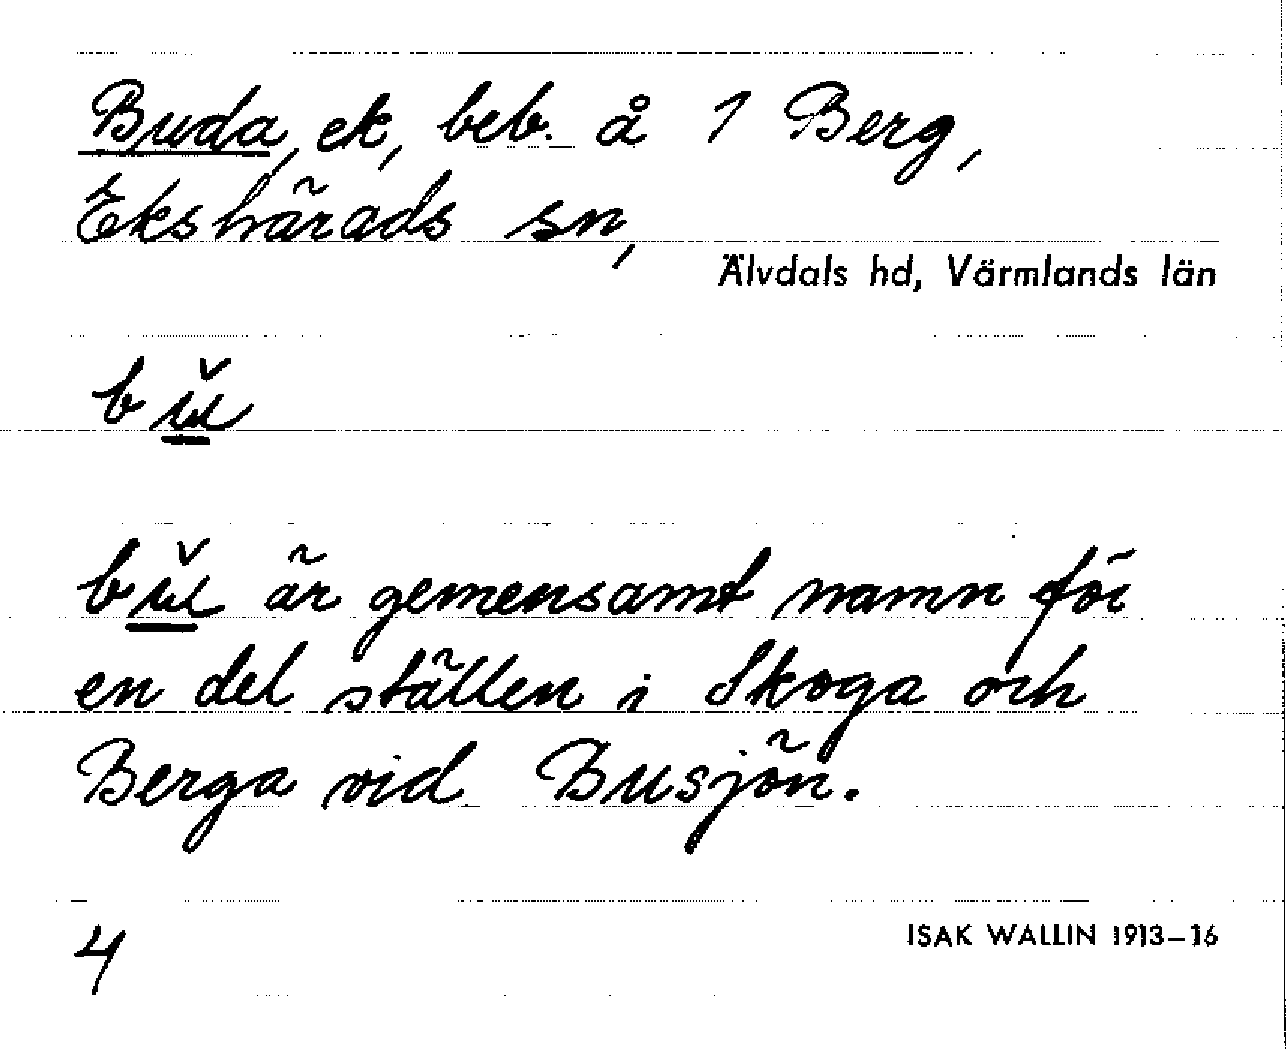 Buda, ek, beb. å 1 Berg,
Ekshärads sn,
Älvdals hd, Värmlands län
bŭ
bŭ är gemensamt namn för
en del ställen i Skoga och
Berga vid Busjön.
4
ISAK WALLIN 1913–16